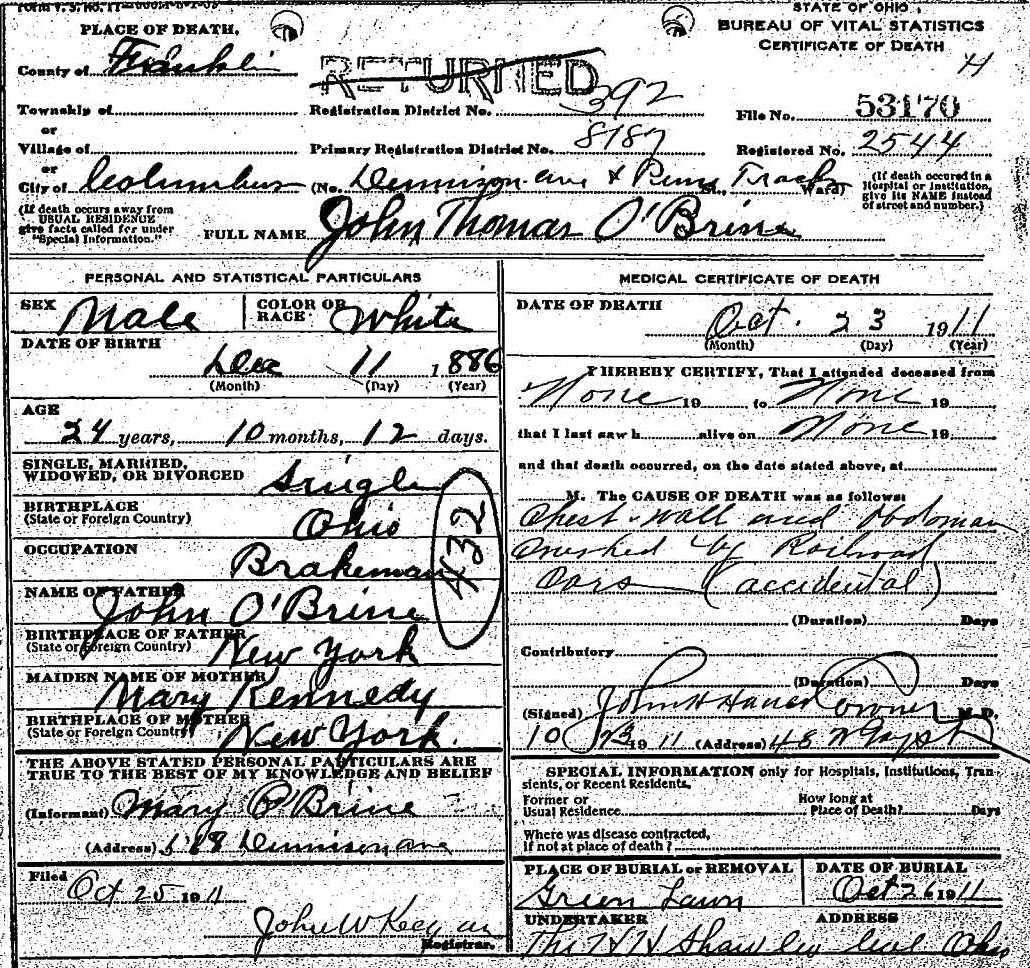 STATE OF OHIO
BUREAU OF VITAL STATISTICS
CERTIFICATE OF DEATH
PLACE OF DEATH,
County of Franklin
RETURNED
H
Township of
Registration District No. 392
File No. 53170
or
Village of
Primary Registration District No. 8187
Registered No. 2544
or
City of Columbus (No. Dennison ave & Penn St., Track Ward)
(If death occured in a Hospital or Institution, give its NAME instead of street and number.)
(If death occurs away from USUAL RESIDENCE give facts called for under "Special Information.")
FULL NAME John Thomas O'Brine
PERSONAL AND STATISTICAL PARTICULARS
SEX Male
COLOR OR RACE White
DATE OF BIRTH
Dec 11 1886
(Month) (Day) (Year)
AGE
24 years, 10 months, 12 days.
SINGLE, MARRIED,
WIDOWED, OR DIVORCED Single
BIRTHPLACE
(State or Foreign Country) Ohio
OCCUPATION
Brakeman
432
NAME OF FATHER
John O'Brine
BIRTHPLACE OF FATHER
(State or Foreign Country) New York
MAIDEN NAME OF MOTHER
Mary Kennedy
BIRTHPLACE OF MOTHER
(State or Foreign Country) New York.
THE ABOVE STATED PERSONAL PARTICULARS ARE
TRUE TO THE BEST OF MY KNOWLEDGE AND BELIEF
(Informant) Mary O'Brine
(Address) Dennison ave
Filed
Oct 25 1911
John W Keegan
Registrar.
MEDICAL CERTIFICATE OF DEATH
DATE OF DEATH
Oct. 23 1911
(Month) (Day) (Year)
I HEREBY CERTIFY, That I attended deceased from
None 19 to None 19
that I last saw h alive on None 19
and that death occurred, on the date stated above, at
M. The CAUSE OF DEATH was as follows:
Chest-wall and Abdoman
Crushed by Railroad
Cars (accidental)
(Duration) Days
Contributory
(Duration) Days
(Signed) John H Coroner M.D.
10/23 1911 (Address) 48 N
SPECIAL INFORMATION only for Hospitals, Institutions, Transients, or Recent Residents,
Former or Usual Residence
How long at Place of Death? Days
Where was disease contracted,
If not at place of death?
PLACE OF BURIAL or REMOVAL
Green Lawn
DATE OF BURIAL
Oct 26 1911
UNDERTAKER
ADDRESS
The Shaw Ohio